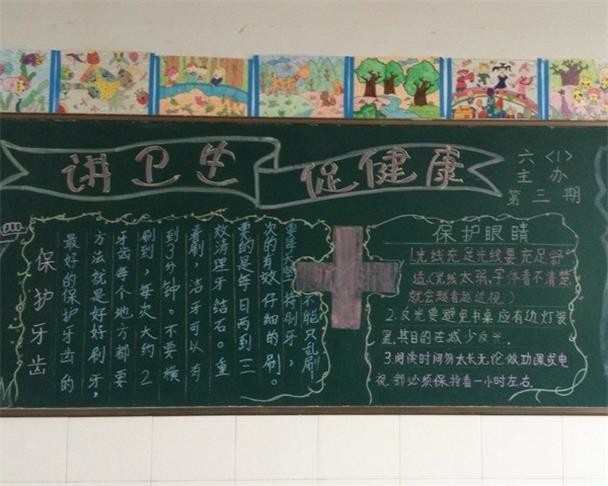 讲卫生 促健康
六〈1〉
主办
第三期
保护牙齿
最好的保护牙齿的
方法就是好好刷牙,
牙齿每个地方都要
刷到,每次大约2
到3分钟。不要横
着刷,洁牙可以有
效清理牙结石。重
要的是每日两到三
次的有效仔细的刷。
刷牙,
不能只乱刷
保护眼睛
1.光线充足光线要充足舒
适,(光线太弱,字体看不清楚
就会越看越近视)
2.反光要避免书桌应有边灯装
置,其目的在减少反光。
3.阅读时间勿太长无论做功课或电
视
保持着一小时左右.